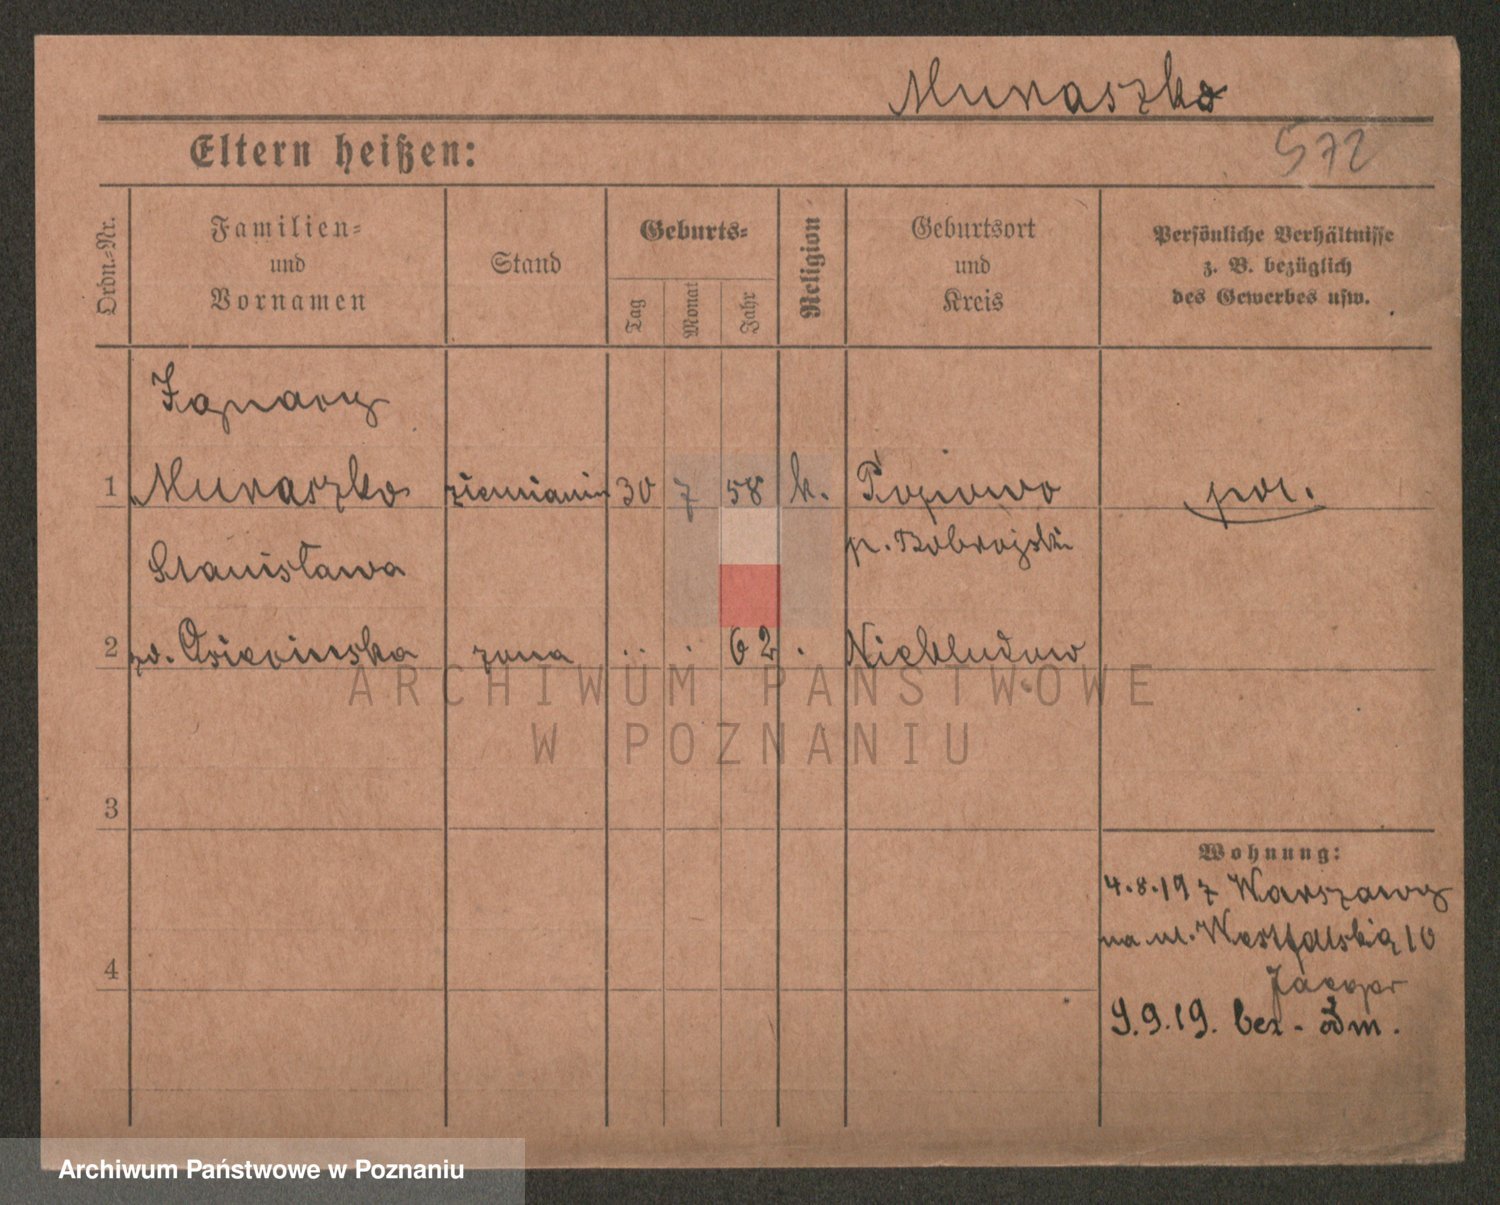 Muraszko
572
Eltern heißen:
Ordn.-Nr.
Familien-
und
Vornamen
Stand
Geburts-
Tag
Monat
Jahr
Religion
Geburtsort
und
Kreis
Persönliche Verhältnisse
z. B. bezüglich
des Gewerbes usw.
Ignacy
1 Muraszko ziemianin 30 7 58 k. Popiowo
p. Bobrojski
Stanisława
2 żona 62 Niebłudow
3
4
Wohnung:
4.8.19 z Warszawy
na ul. Westfalską 10
Jaeger
9.9.19. bez-adm.
ARCHIWUM PAŃSTWOWE
W POZNANIU
Archiwum Państwowe w Poznaniu